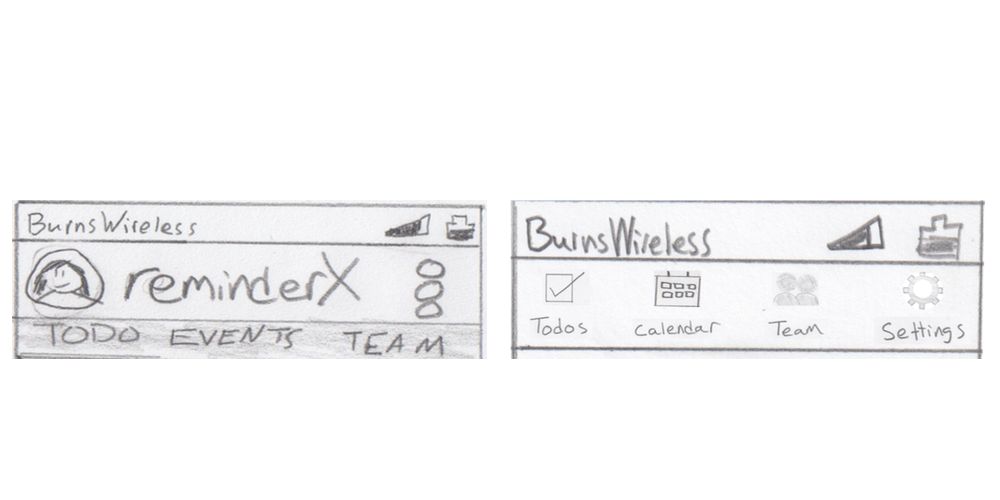 BurnsWireless
reminderX
TODO EVENTS TEAM
BurnsWireless
Todos Calendar Team Settings